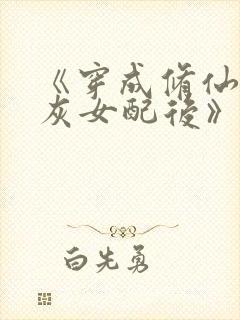 《穿成脩仙
灰女配後》
白先勇